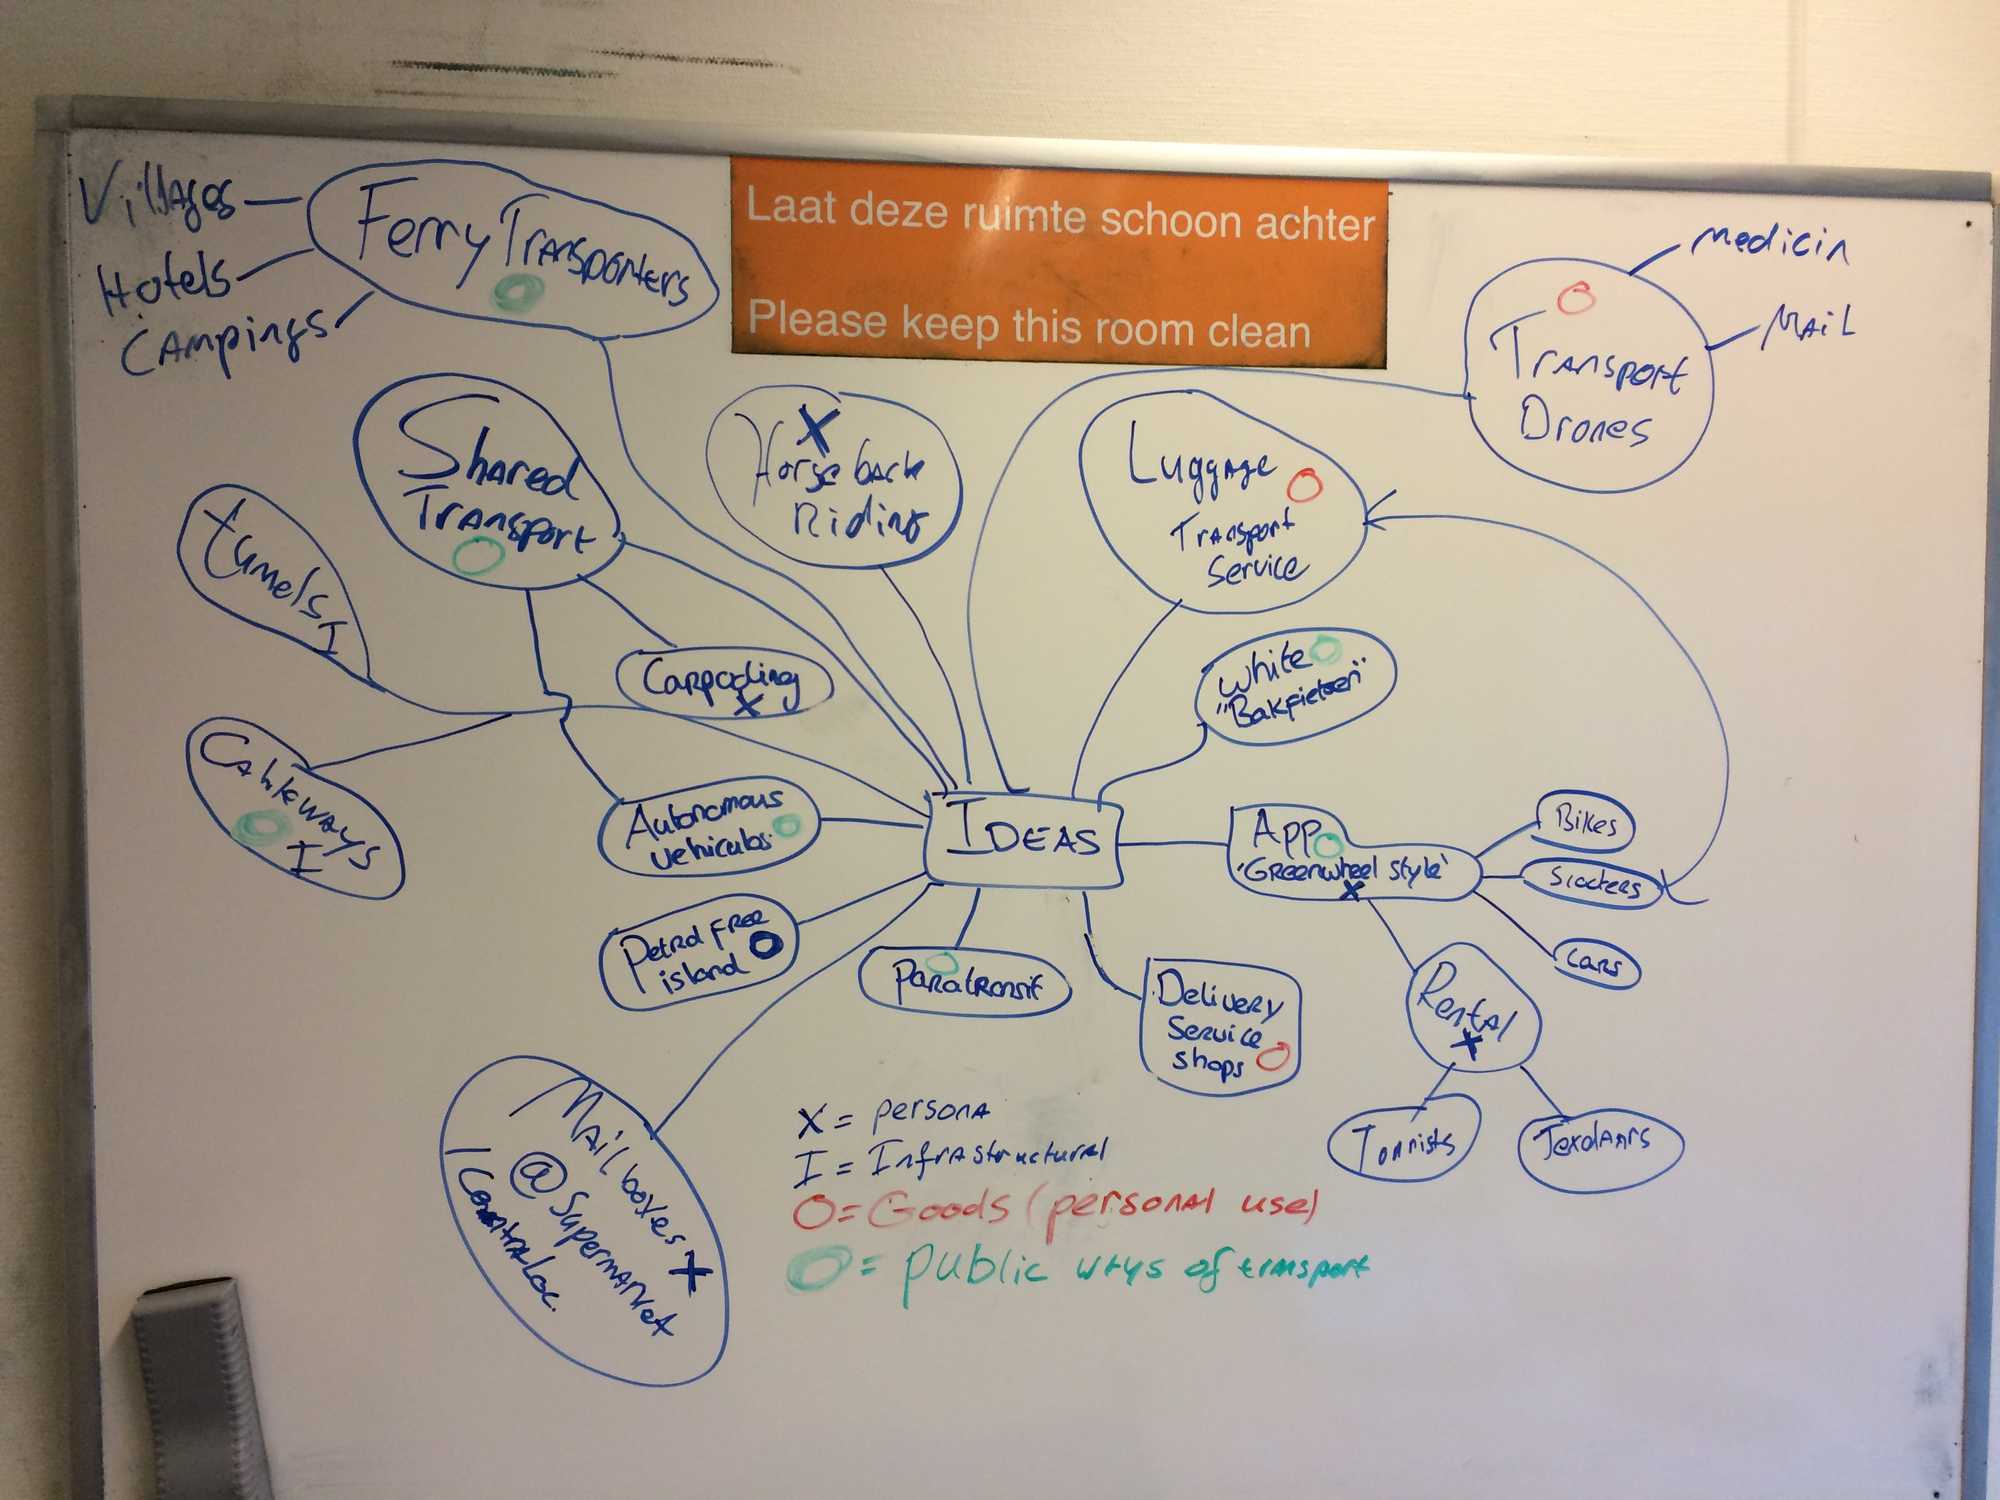 Laat deze ruimte schoon achter
Please keep this room clean
Villages
Hotels
Campings
Ferry Transporters
medicin
Mail
Transport
Drones
Shared
Transport
X
Horse back
Riding
Luggage
Transport
Service
tunnels
I
Carpooling
X
White
"Bakfietsen"
Cableways
I
Autonomous
vehiculos
IDEAS
App
'Greenwheel style'
X
Bikes
Scooters
Cars
Petrol free
island
Paratransit
Delivery
Service
shops
Rental
X
Tourists
Texelaars
Mail boxes X
@ Supermarket
/ Central loc.
X = persona
I = Infrastructural
O = Goods (personal use)
O = public ways of transport